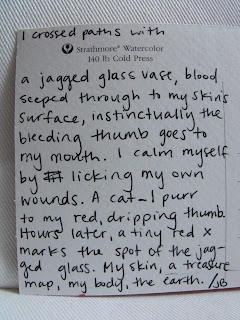 I crossed paths with
Strathmore® Watercolor
140 lb Cold Press
a jagged glass vase, blood
seeped through to my skin's
surface, instinctually the
bleeding thumb goes to
my mouth. I calm myself
by licking my own
wounds. A cat—I purr
to my red, dripping thumb.
Hours later, a tiny red x
marks the spot of the jag-
ged glass. My skin, a treasure
map, my body, the earth. /JB